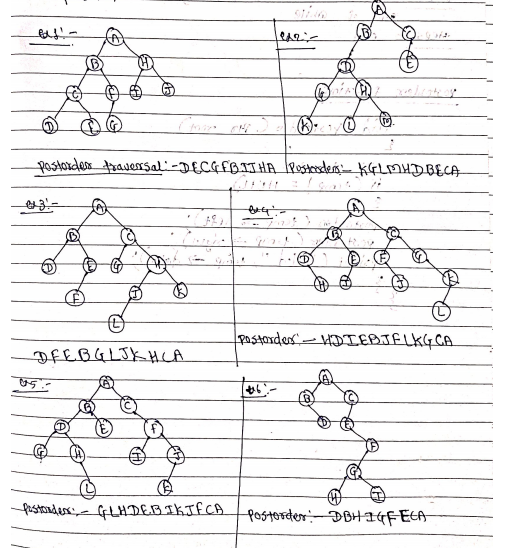 ex1:-
A
B H
C F I J
D E G
Postorder traversal:- DECGFBIJHA
ex2:-
A
B C
D E
G H
K L M
Postorder:- KGLMHDBECA
ex3:-
A
B C
D E G H
F J K
L
DFEBGLJKHCA
ex4:-
A
B C
D E F G
H I J K
L
Postorder:- HDIEBJFLKGCA
ex5:-
A
B C
D E F
G H I J
L K
Postorder:- GLHDEBIKJFCA
ex6:-
A
B C
D E
F
G
H I
Postorder:- DBHIGFECA